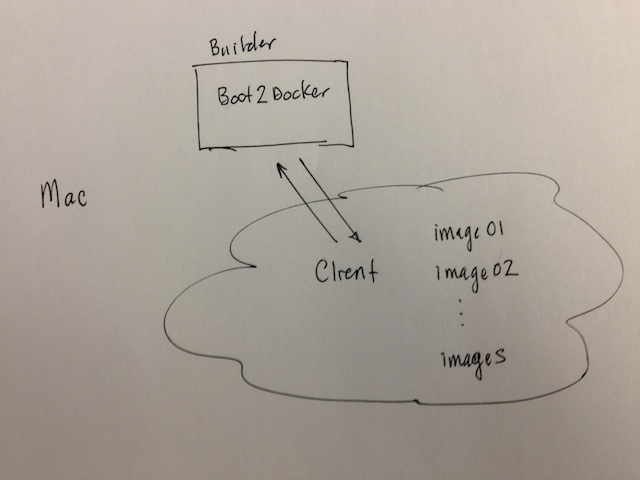 Builder
Boot2Docker
Mac
Client
image01
image02
images